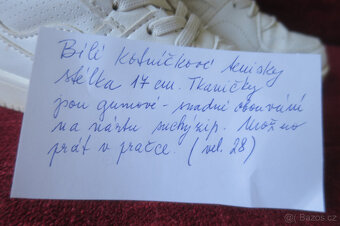 Bílé kotníčkové tenisky
stélka 17 cm. Tkaničky
jsou gumové - snadné obouvání
na nártu suchý zip. Možno
prát v pračce. (vel. 28)
© Bazos.cz